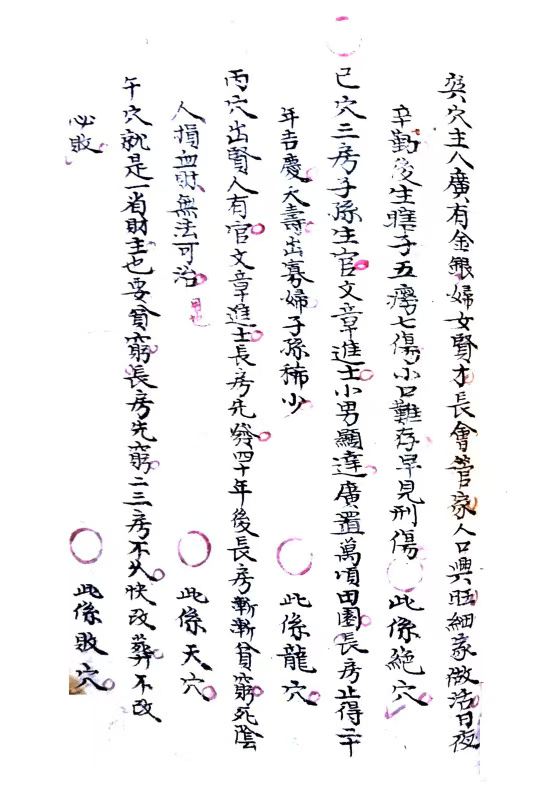 癸穴主人廣有金銀婦女賢才長會營家人口興旺細家做活日夜
辛勤後生瞎子五癆七傷小口難存早見刑傷
此係絕穴
巳穴三房子孫生官文章進士小男顯達廣置萬頃田園長房止得二十
年吉慶夭壽出寡婦子孫稀少
此係龍穴
丙穴出賢人有官文章進士長房先發四十年後長房漸漸貧窮死陰
人損血財無法可治
此係天穴
午穴就是一省財主也要貧窮長房先窮二三房不久快改葬不改
必敗
此係敗穴